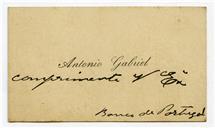 Antonio Gabriel
comprimenta V. Exª
Banco de Portugal